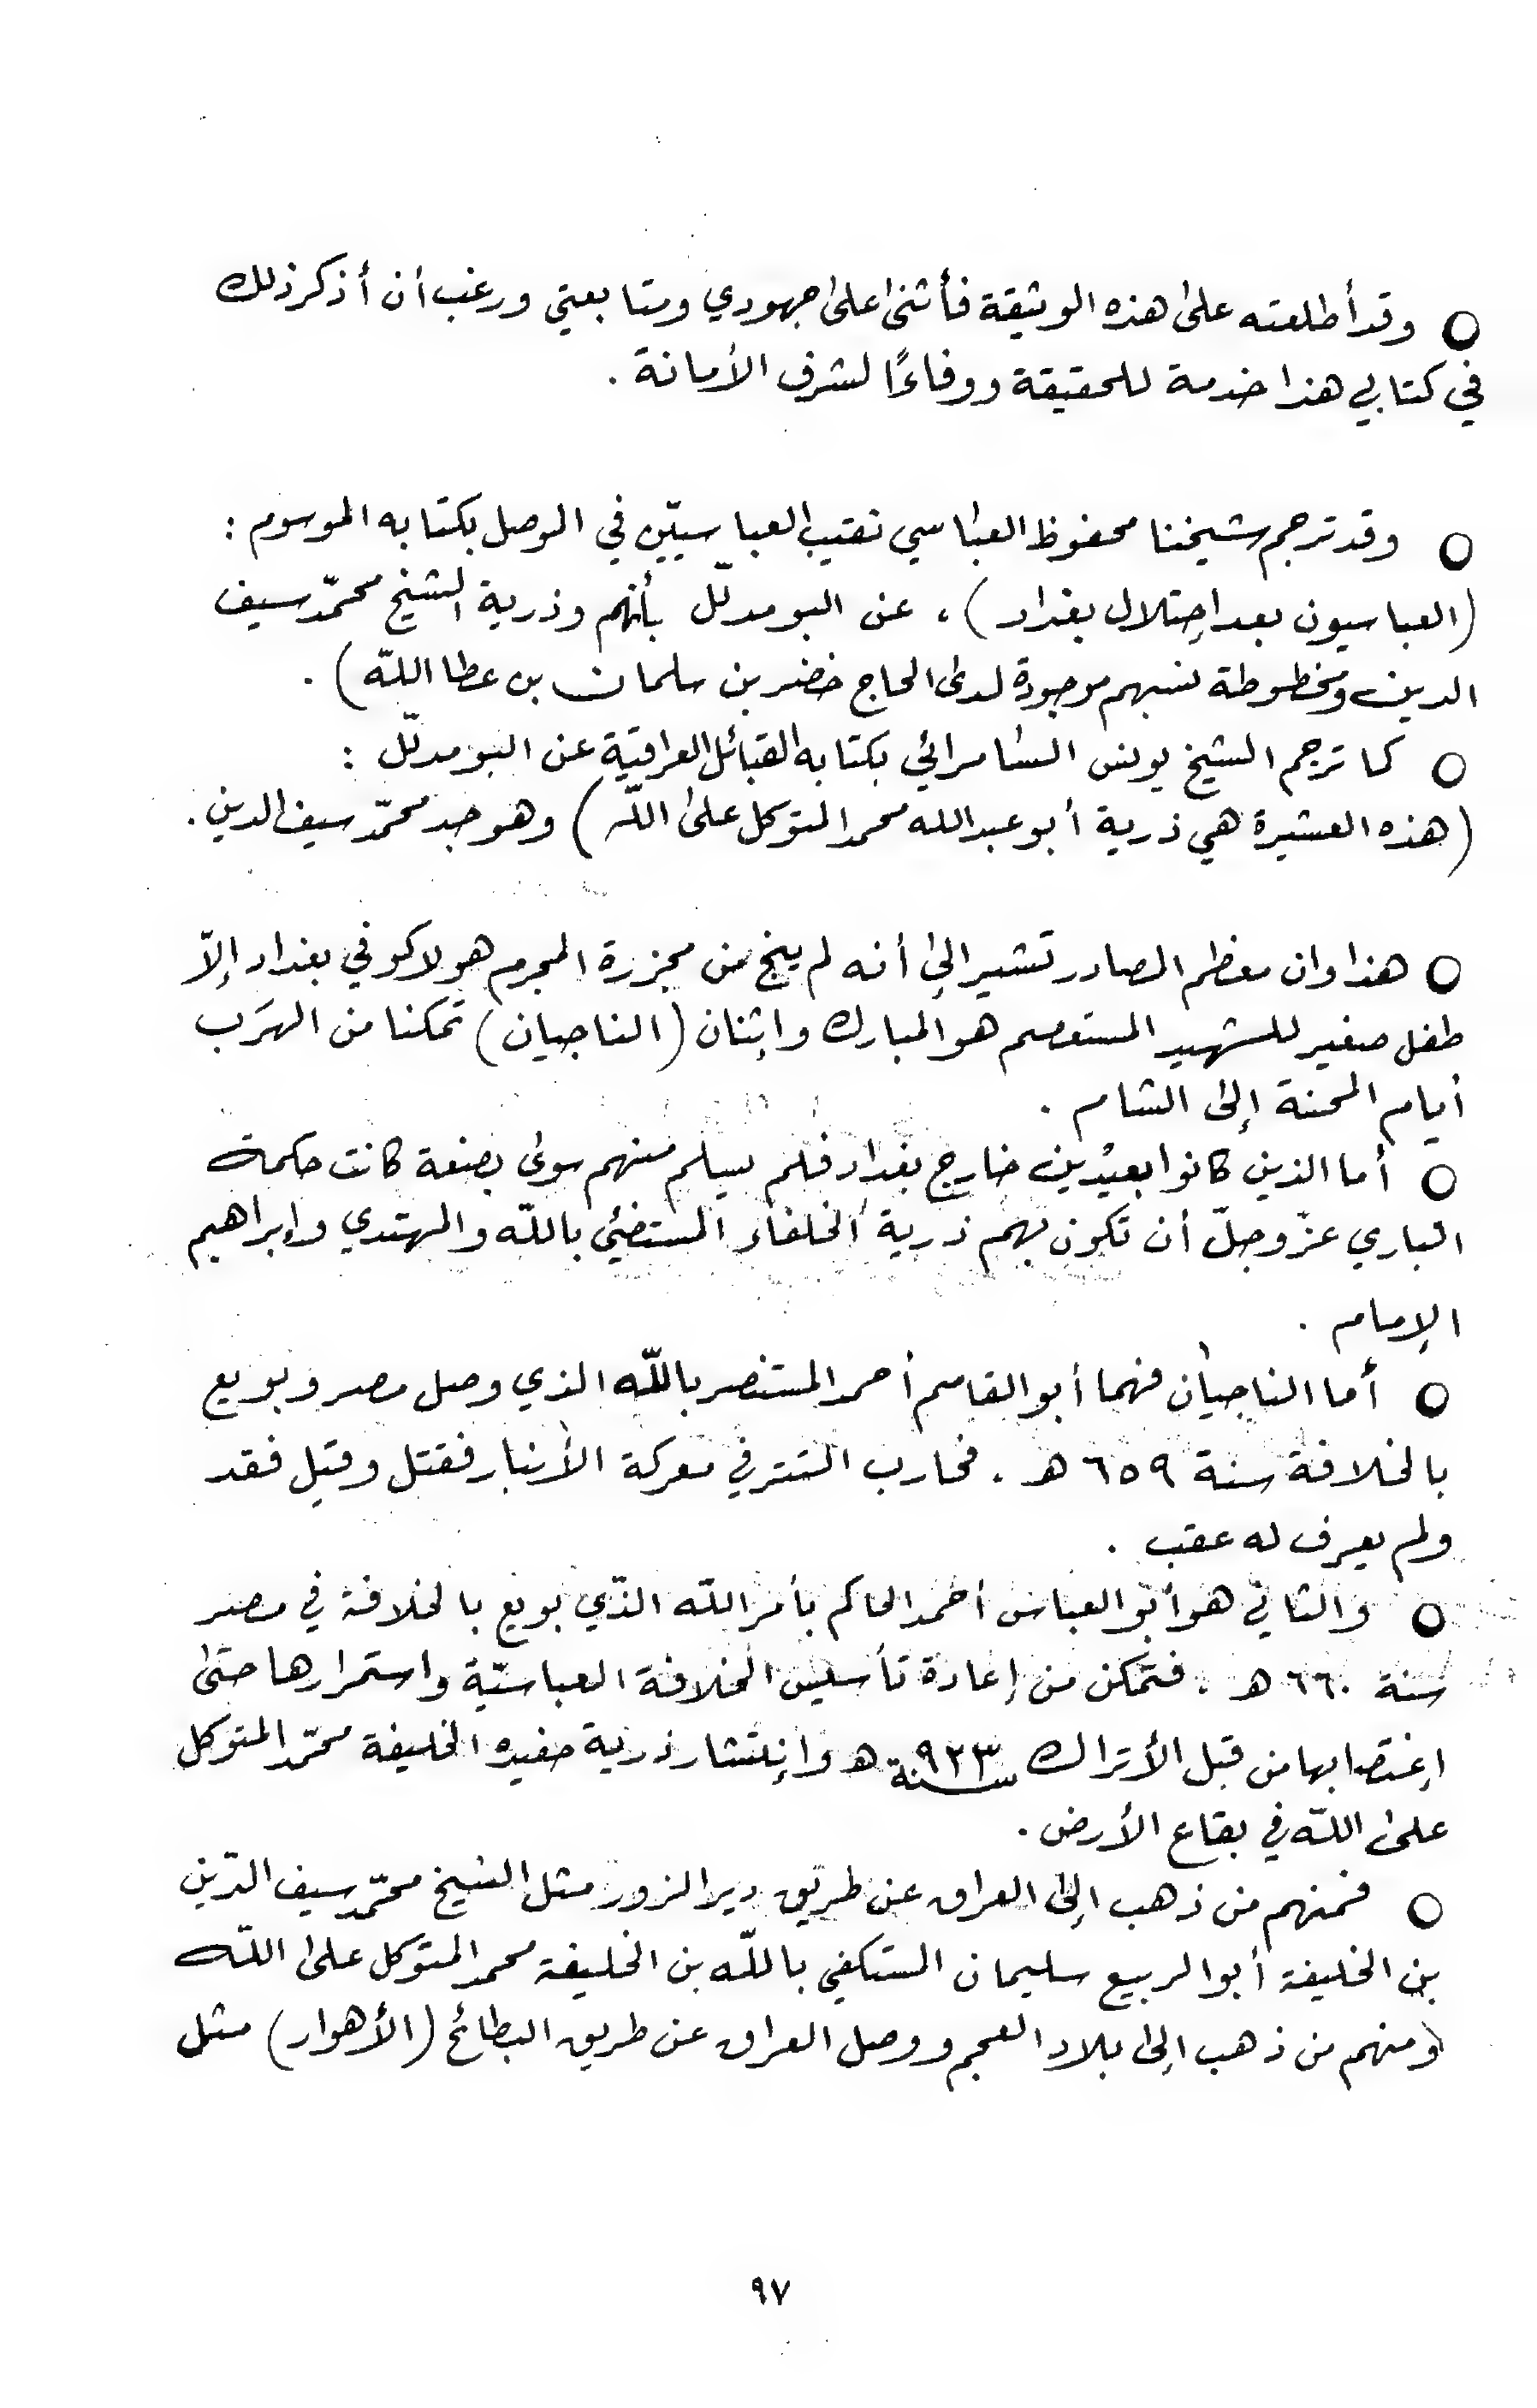 ○ وقد أطلعته على هذه الوثيقة فأثنى على جهودي ومتابعتي ورغب أن أذكر ذلك
في كتابي هذا خدمة للحقيقة ووفاءً لشرف الأمانة .
○ وقد ترجم شيخنا محفوظ العباسي نقيب العباسيّين في الموصل بكتابه الموسوم :
(العباسيون بعد احِتلال بغداد) ، عن البومدلّل بأنهم وذرية الشيخ محمّد سيف
الدين ومخطوطة نسبهم موجودة لدى الحاج خضر بن سلمان بن عطا اللّه) .
○ كما ترجم الشيخ يونس السامرائي بكتابه القبائل العراقيّة عن البومدلّل :
(هذه العشيرة هي ذرية أبو عبدالله محمد المتوكل على اللّه) وهو جد محمّد سيف الدين .
○ هذا وان معظم المصادر تشير الى أنه لم ينج من مجزرة المجرم هولاكو في بغداد إلاّ
طفل صغير للشهيد المستعصم هو المبارك واثِنان (الناجيان) تمكنا من الهرَب
أيام المحنة إلى الشام .
○ أما الذين كانوا بعيدين خارج بغداد فلم يسلم منهم سوى بضعة كانت حكمة
الباري عزّ وجلّ أن تكون بهم ذرية الخلفاء المستضئي باللّه والمهتدي وإبراهيم
الإمام .
○ أما الناجيان فهما أبو القاسم أحمد المستنصر باللّه الذي وصل مصر وبويع
بالخلافة سنة ٦٥٩ هـ . فحارب التتر في معركة الأنبار فقتل وقيل فقد
ولم يعرف له عقب .
○ والثاني هو أبو العباس أحمد الحاكم بأمر اللّه الذّي بويع بالخلافة في مصر
سنة ٦٦٠ هـ . فتمكن من إعادة تأسيس الخلافة العباسيّة واستمرارها حتى
اغِتصابها من قبل الأتراك سنة ٩٢٣ هـ وانِتشار ذرية حفيده الخليفة محمّد المتوكل
على اللّه في بقاع الأرض .
○ فمنهم من ذهب الى العراق عن طريق دير الزور مثل الشيخ محمّد سيف الدّين
بن الخليفة أبو الربيع سليمان المستكفي باللّه بن الخليفة محمد المتوكل على اللّه
ومنهم من ذهب الى بلاد العجم ووصل العراق عن طريق البطائح (الأهوار) مثل
٩٧